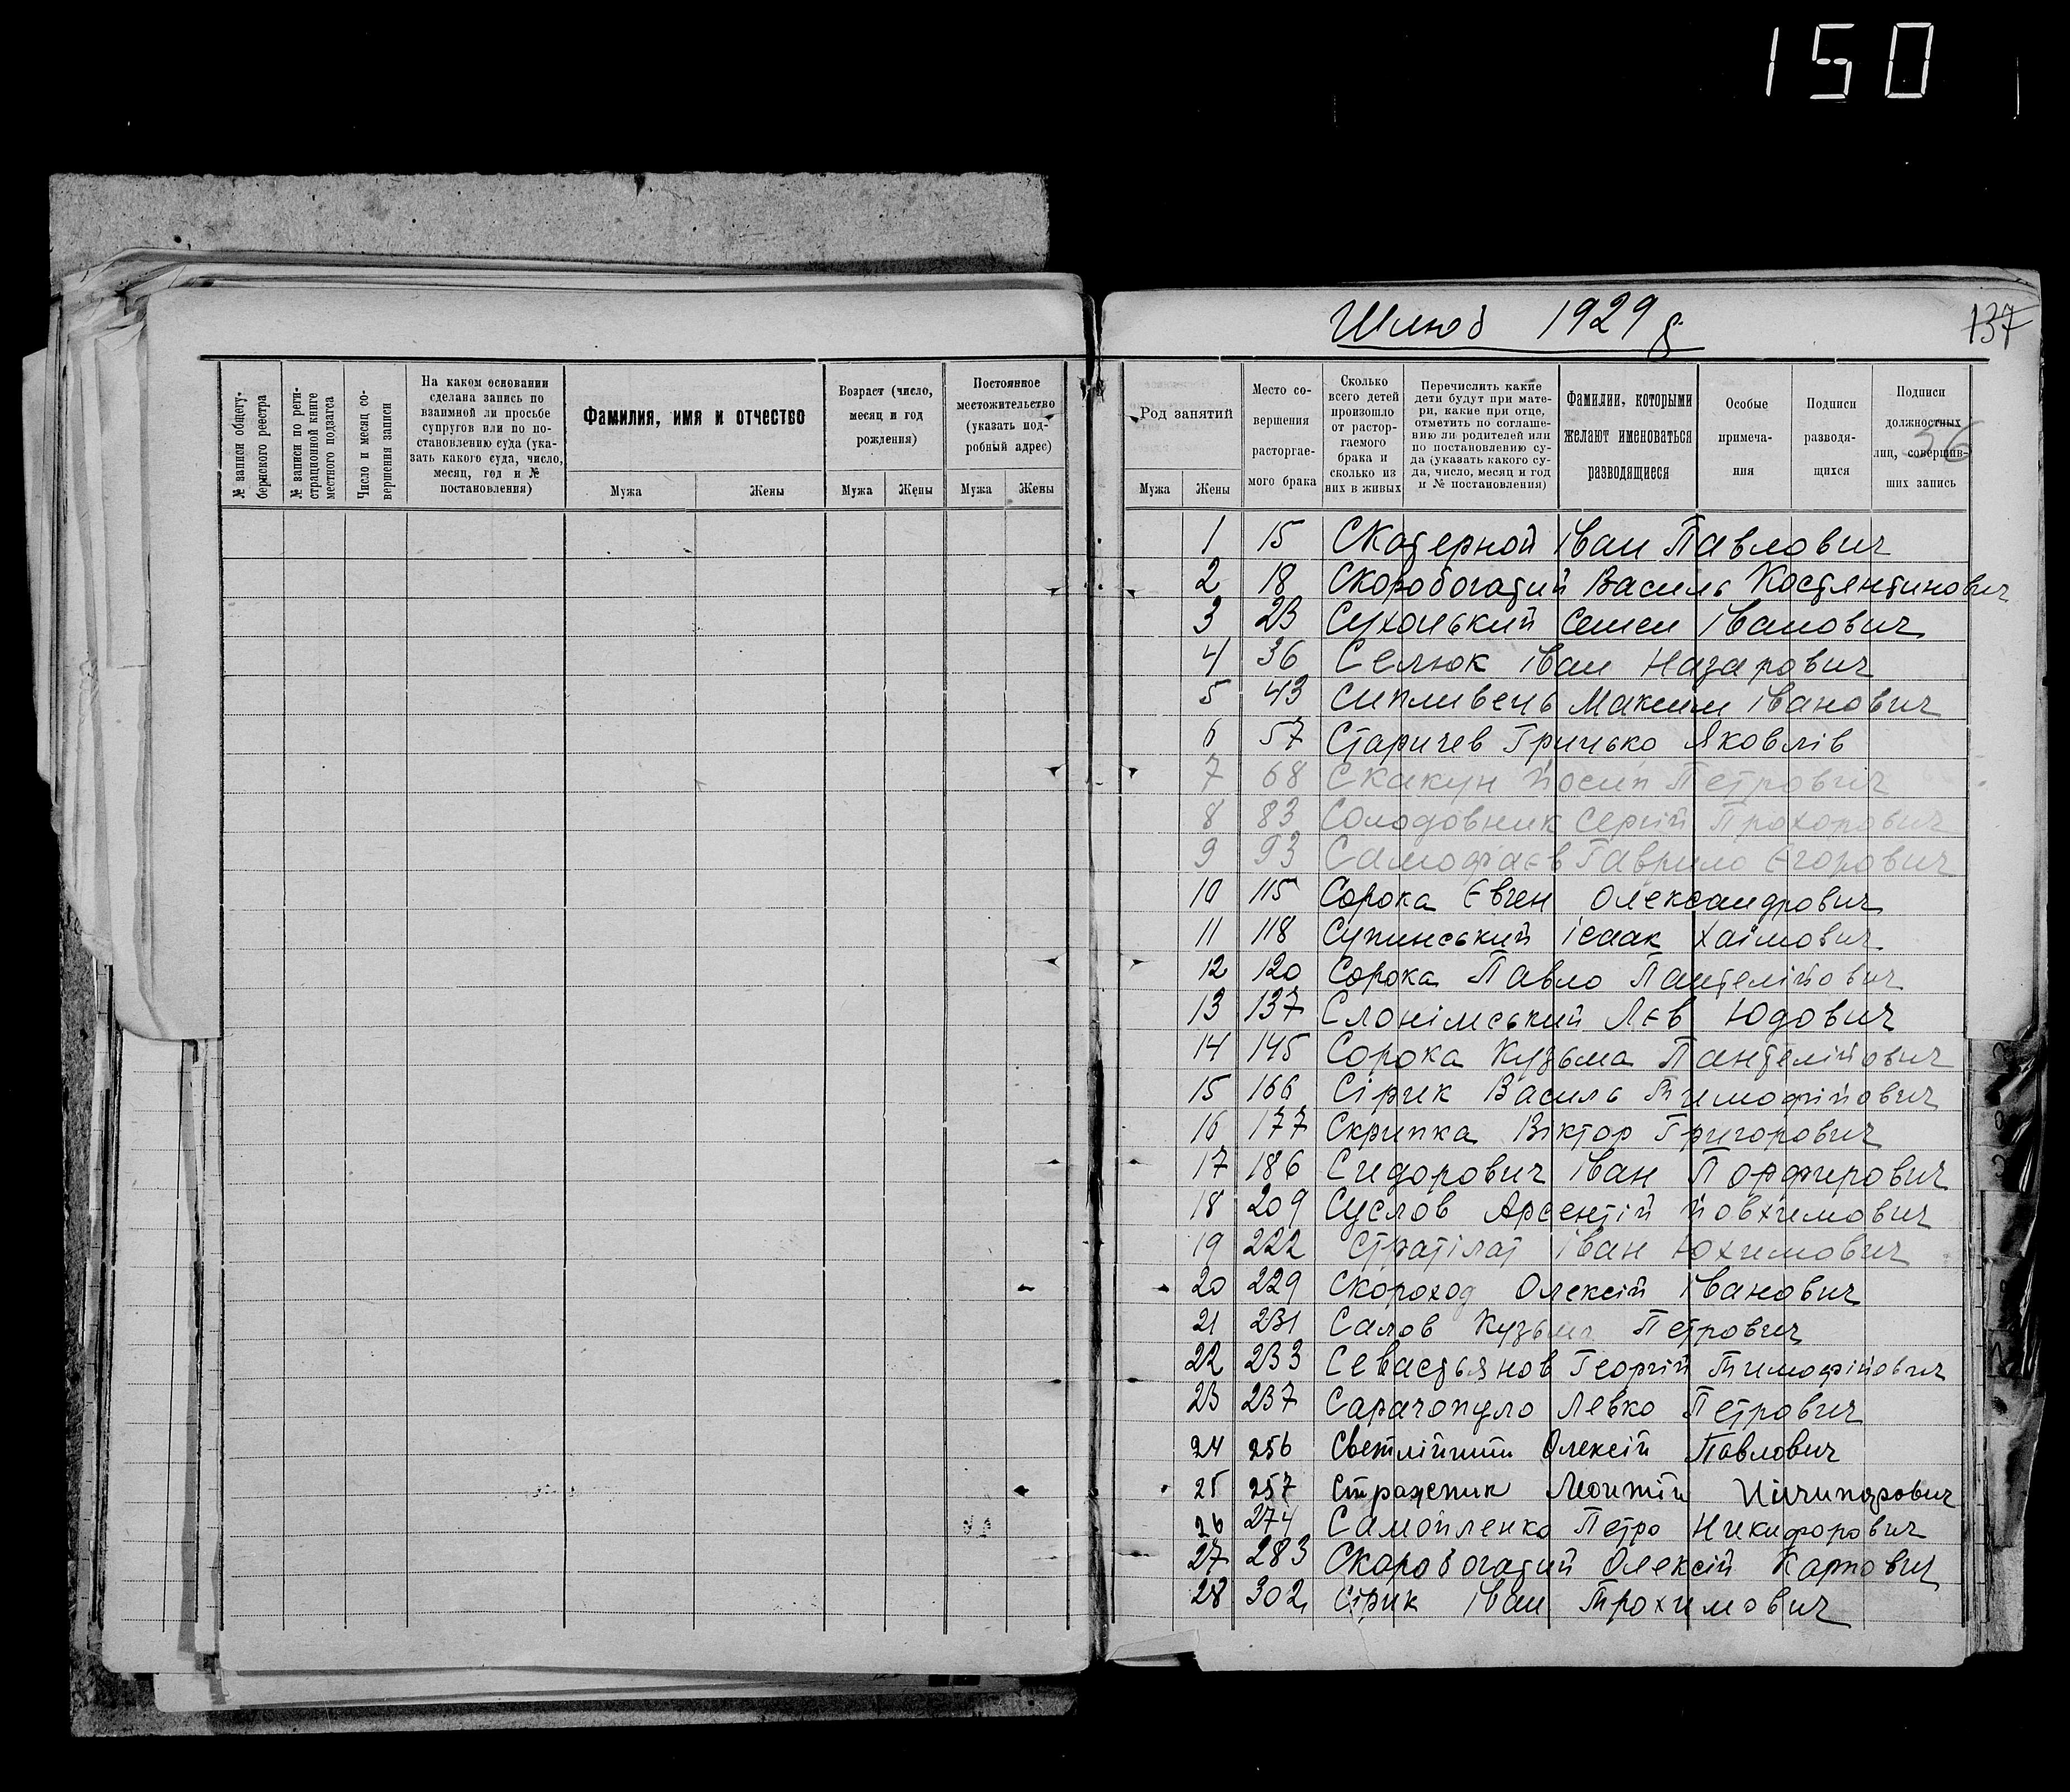 150
Шлюб 1929 р.
137
36
№ записи общегу-
бернского реестра
№ записи по реги-
страционной книге
местного подзагса
Число и месяц со-
вершения записи
На каком основании
сделана запись по
взаимной ли просьбе
супругов или по по-
становлению суда (ука-
зать какого суда, число,
месяц, год и №
постановления)
Фамилия, имя и отчество
Мужа Жены
Возраст (число,
месяц и год
рождения)
Мужа Жены
Постоянное
местожительство
(указать под-
робный адрес)
Мужа Жены
Род занятий
Мужа Жены
Место со-
вершения
расторгае-
мого брака
Сколько
всего детей
произошло
от растор-
гаемого
брака и
сколько из
них в живых
Перечислить какие
дети будут при мате-
ри, какие при отце,
отметить по соглаше-
нию ли родителей или
по постановлению су-
да (указать какого су-
да, число, месяц и год
и № постановления)
Фамилии, которыми
желают именоваться
разводящиеся
Особые
примеча-
ния
Подписи
разводя-
щихся
Подписи
должностных
лиц, совершив-
ших запись
1 15 Скатерной Іван Павлович
2 18 Скоробогатий Василь Костянтинович
3 23 Сухонький Семен Іванович
4 36 Селюк Іван Назарович
5 43 Сипливень Максим Іванович
6 57 Старичев Грицько Яковлів
7 68 Скакун Йосип Петрович
8 83 Солодовник Сергій Прохорович
9 93 Гаврило Єгорович
10 115 Сорока Євген Олександрович
11 118 Супинський Ісаак Хаімович
12 120 Сорока Павло Пантелійович
13 137 Слонімський Лєв Юдович
14 145 Сорока Кузьма Пантелійович
15 166 Сірик Василь Тимофійович
16 177 Скрипка Віктор Григорович
17 186 Сидорович Іван Порфирович
18 209 Суслов Арсентій Йовхимович
19 222 Стратілат Іван Юхимович
20 229 Скороход Олексій Іванович
21 231 Салов Кузьма Петрович
22 233 Севастьянов Георгій Тимофійович
23 237 Сарачопуло Левко Петрович
24 256 Олексій Павлович
25 257
26 274 Самойленко Петро Никифорович
27 283 Скоробогатий Олексій Карпович
28 302 Сірик Іван Трохимович